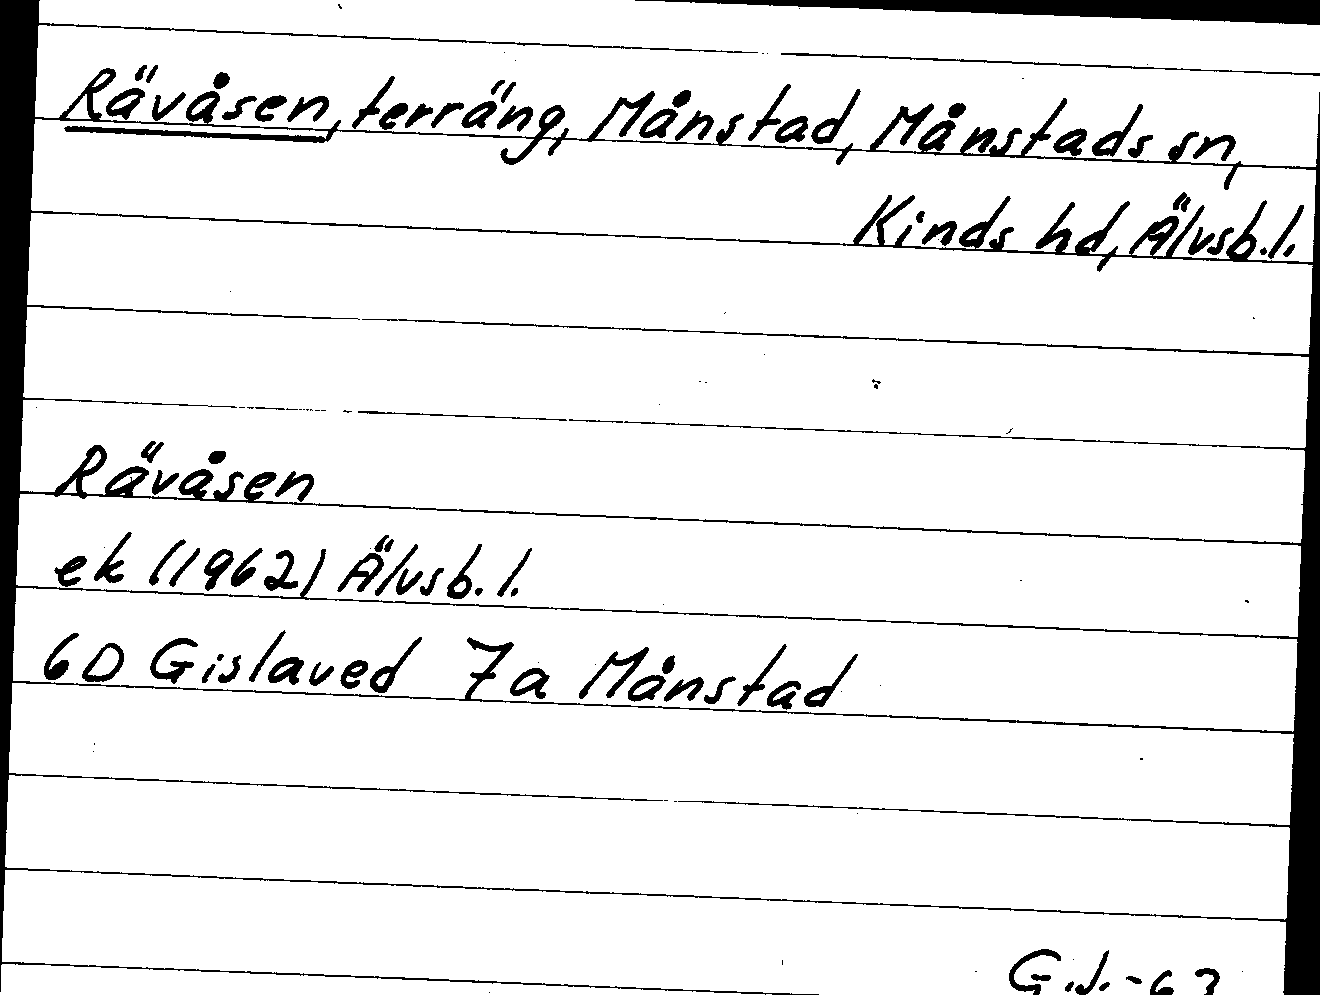 Rävåsen, terräng, Månstad, Månstads sn,
Kinds hd, Älvsb.l.
Rävåsen
ek (1962) Älvsb.l.
6D Gislaved 7a Månstad
G.J.-63